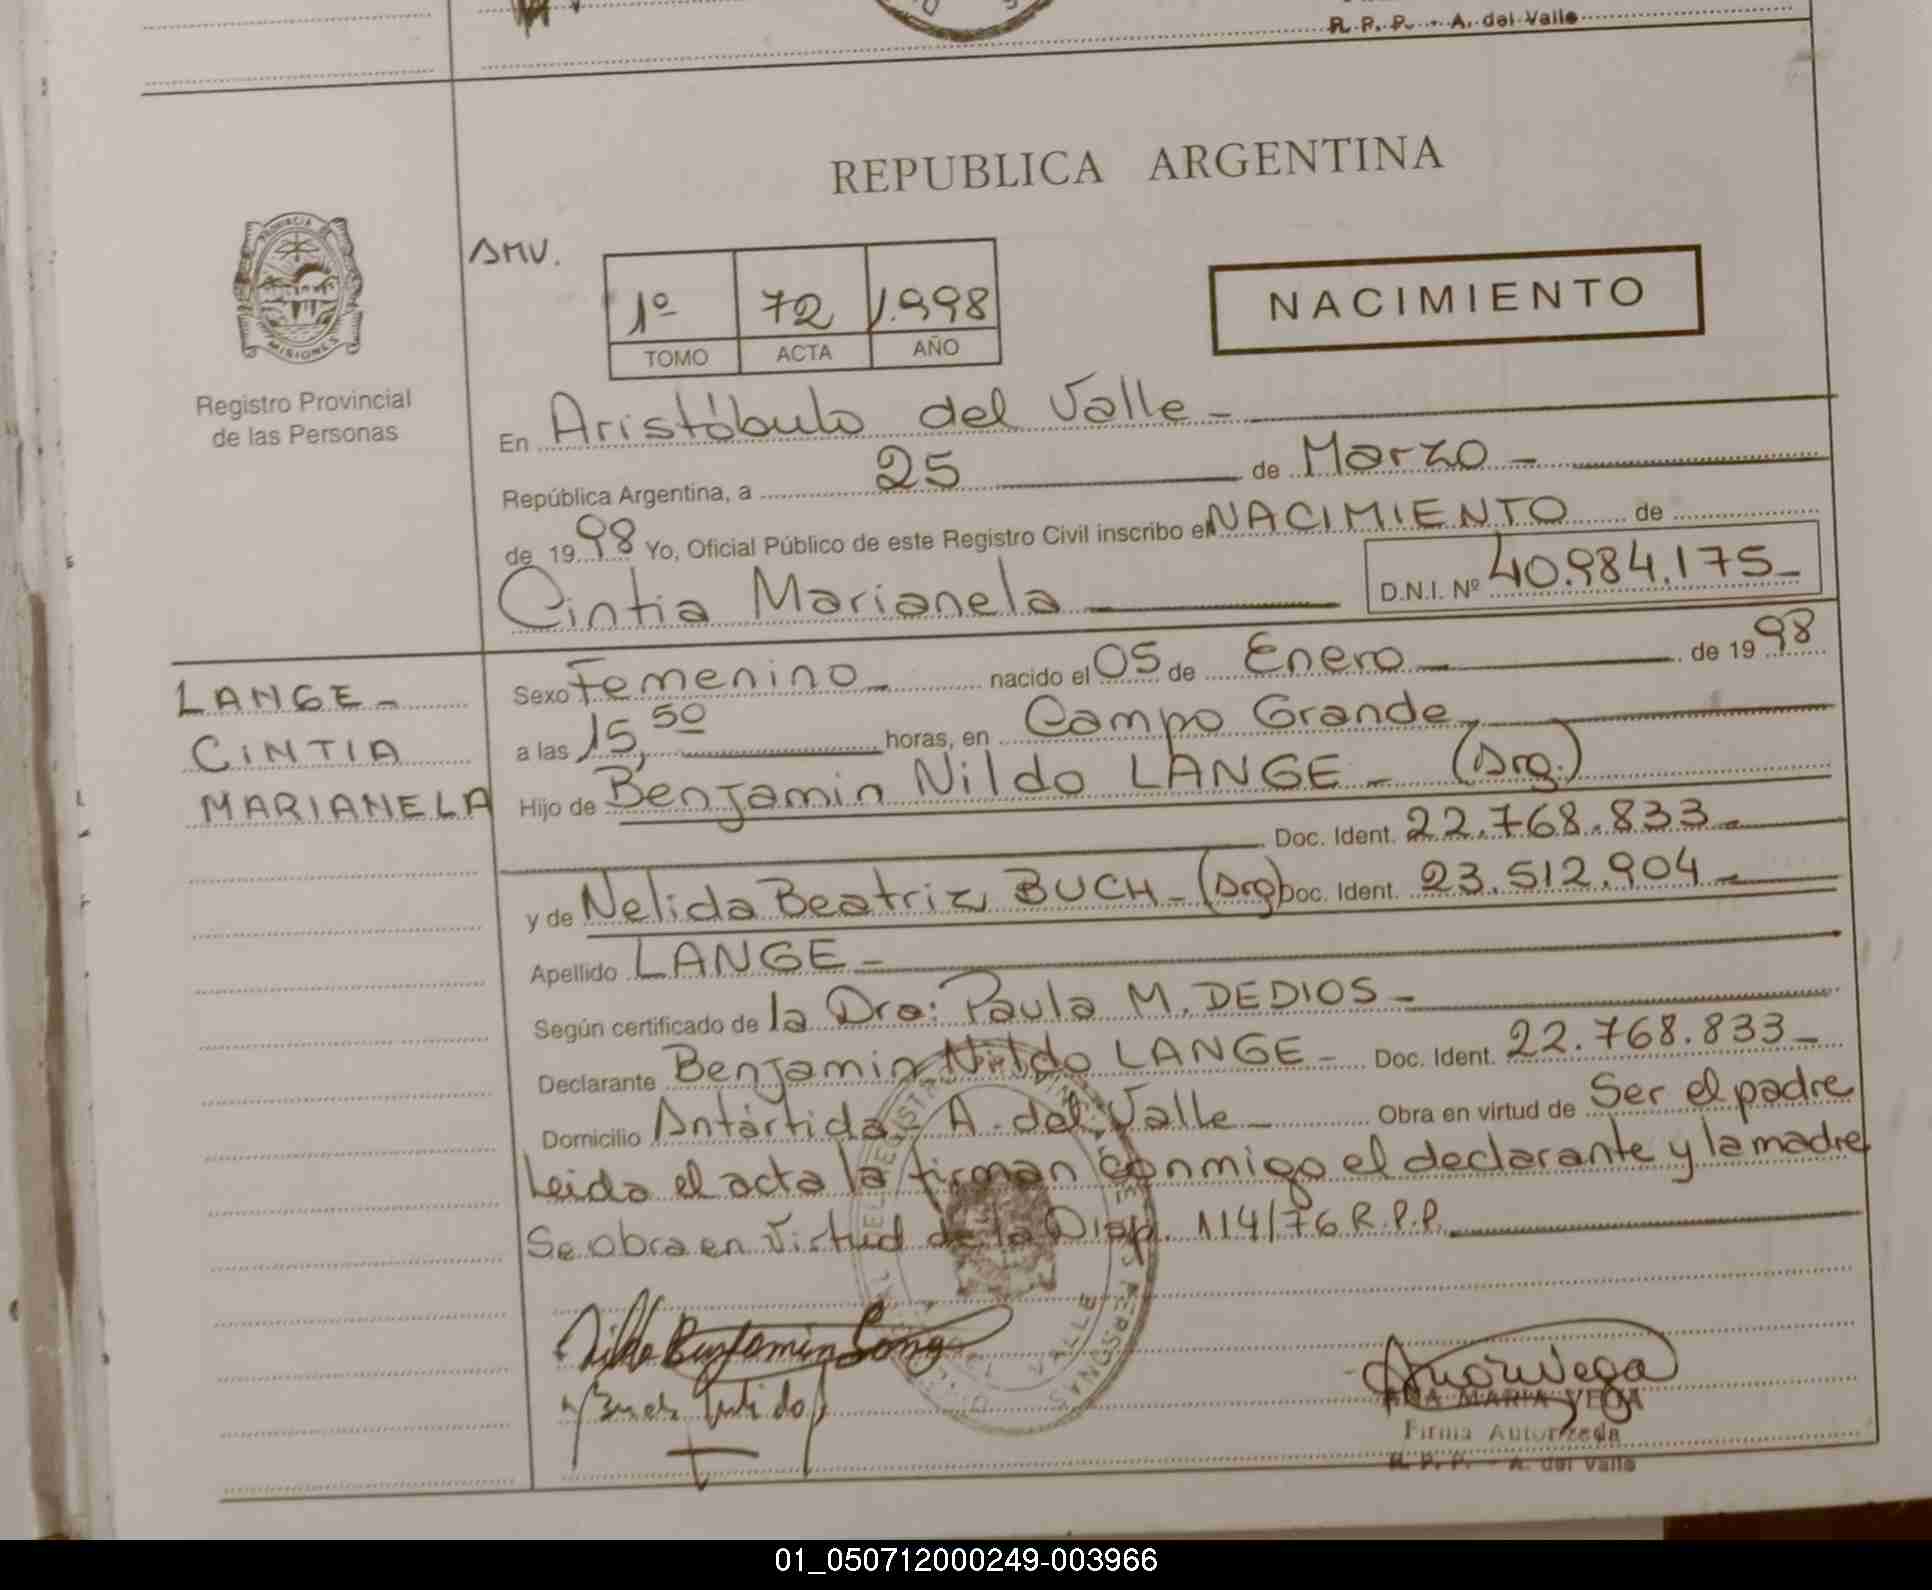 R. P. P. - A. del Valle
REPUBLICA ARGENTINA
PROVINCIA DE
MISIONES
Registro Provincial
de las Personas
AMV.
1º 72 1.998
TOMO ACTA AÑO
NACIMIENTO
En Aristóbulo del Valle -
República Argentina, a 25 de Marzo -
de 1998 Yo, Oficial Público de este Registro Civil inscribo el NACIMIENTO de
Cintia Marianela D.N.I. Nº 40.984.175-
LANGE-
CINTIA
MARIANELA
Sexo Femenino- nacido el 05 de Enero de 1998
a las 15,50 horas, en Campo Grande,
Hijo de Benjamin Nildo LANGE- (Arg.)
Doc. Ident. 22.768.833-
y de Nelida Beatriz BUCH- (Arg) Doc. Ident. 23.512.904-
Apellido LANGE-
Según certificado de la Dra: Paula M. DEDIOS-
Declarante Benjamin Nildo LANGE- Doc. Ident. 22.768.833-
Domicilio Antártida- A. del Valle- Obra en virtud de Ser el padre
Leida el acta la firman conmigo el declarante y la madre
Se obra en virtud de la Disp. 114/76 R.P.P.
VALLE
PERSONAS
ANA MARIA VEGA
Firma Autorizada
R. P. P. - A. del Valle
01_050712000249-003966